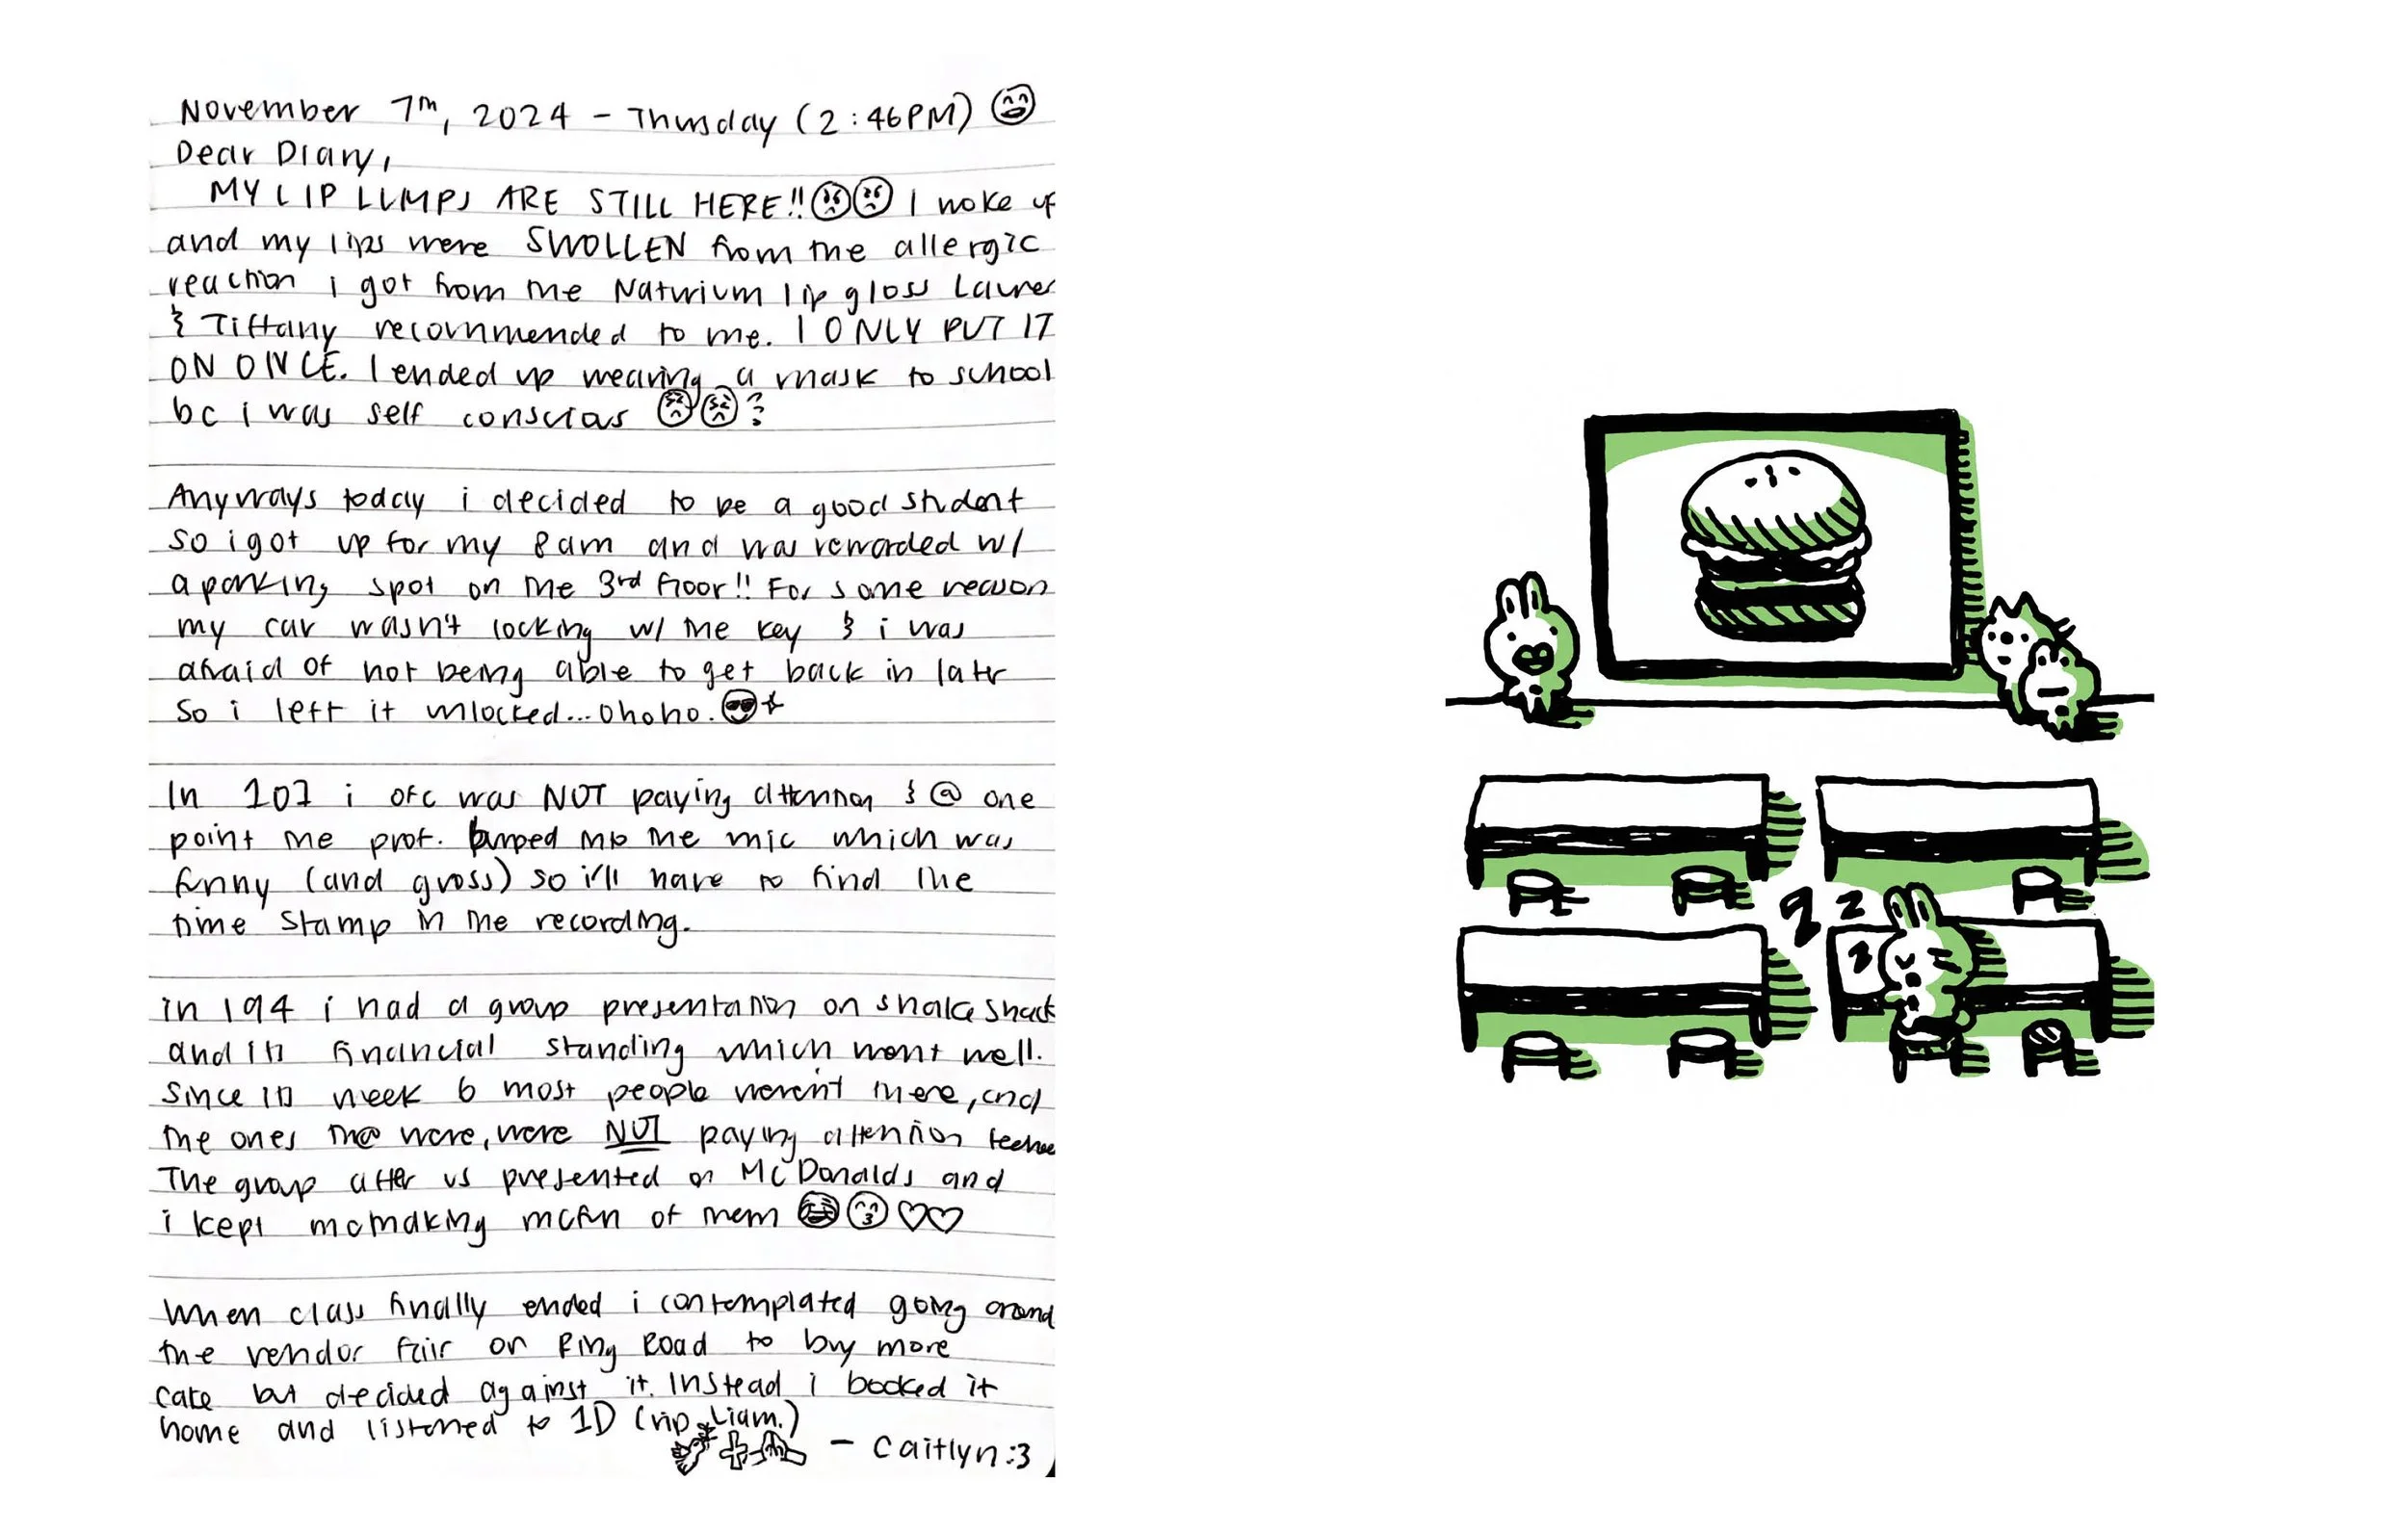 November 7th, 2024 - Thursday (2:46PM)
Dear Diary,
MY LIP LUMPS ARE STILL HERE!! I woke up
and my lips were SWOLLEN from the allergic
reaction i got from the Naturium lip gloss Lauren
& Tiffany recommended to me. I ONLY PUT IT
ON ONCE. I ended up wearing a mask to school
bc i was self conscious
Anyways today i decided to be a good student
so i got up for my 8am and was rewarded w/
a parking spot on the 3rd floor!! For some reason
my car wasn't locking w/ the key & i was
afraid of not being able to get back in later
so i left it unlocked... ohoho.
In 107 i ofc was NOT paying attention & @ one
point the prof. burped into the mic which was
funny (and gross) so i'll have to find the
time stamp in the recording.
in 194 i had a group presentation on shake shack
and its financial standing which went well.
Since its week 6 most people weren't there, and
the ones th@ were, were NOT paying attention teehee
The group after us presented on McDonalds and
i kept mcmaking mcfun of them
When class finally ended i contemplated going around
the vendor fair on Ring Road to buy more
cake but decided against it. Instead i booked it
home and listened to 1D (rip Liam.)
- Caitlyn :3
z z
z